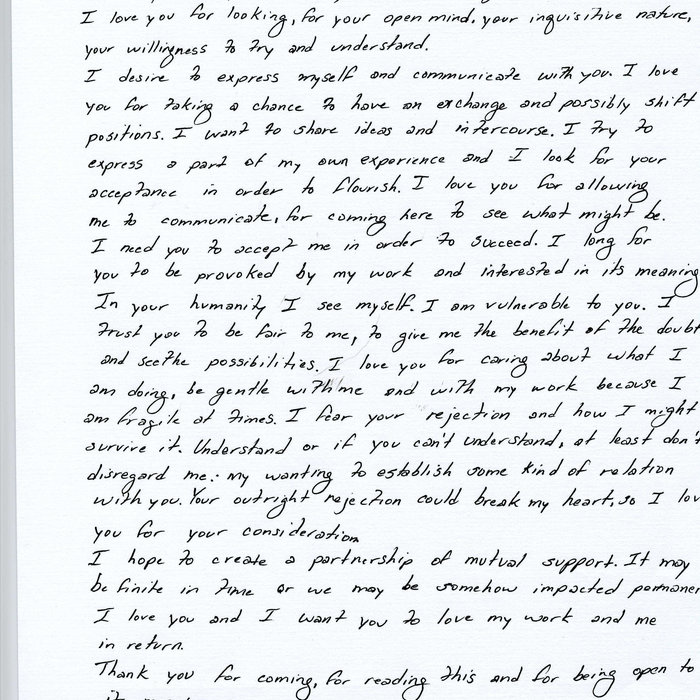 I love you for looking, for your open mind, your inquisitive nature,
your willingness to try and understand.
I desire to express myself and communicate with you. I love
you for taking a chance to have an exchange and possibly shift
positions. I want to share ideas and intercourse. I try to
express a part of my own experience and I look for your
acceptance in order to flourish. I love you for allowing
me to communicate, for coming here to see what might be.
I need you to accept me in order to succeed. I long for
you to be provoked by my work and interested in its meaning
In your humanity I see myself. I am vulnerable to you. I
trust you to be fair to me, to give me the benefit of the doubt
and see the possibilities. I love you for caring about what I
am doing, be gentle with me and with my work because I
am fragile at times. I fear your rejection and how I might
survive it. Understand or if you can't understand, at least don't
disregard me: my wanting to establish some kind of relation
with you. Your outright rejection could break my heart, so I lov
you for your consideration
I hope to create a partnership of mutual support. It may
be finite in time or we may be somehow impacted permanen
I love you and I want you to love my work and me
in return.
Thank you for coming, for reading this and for being open to